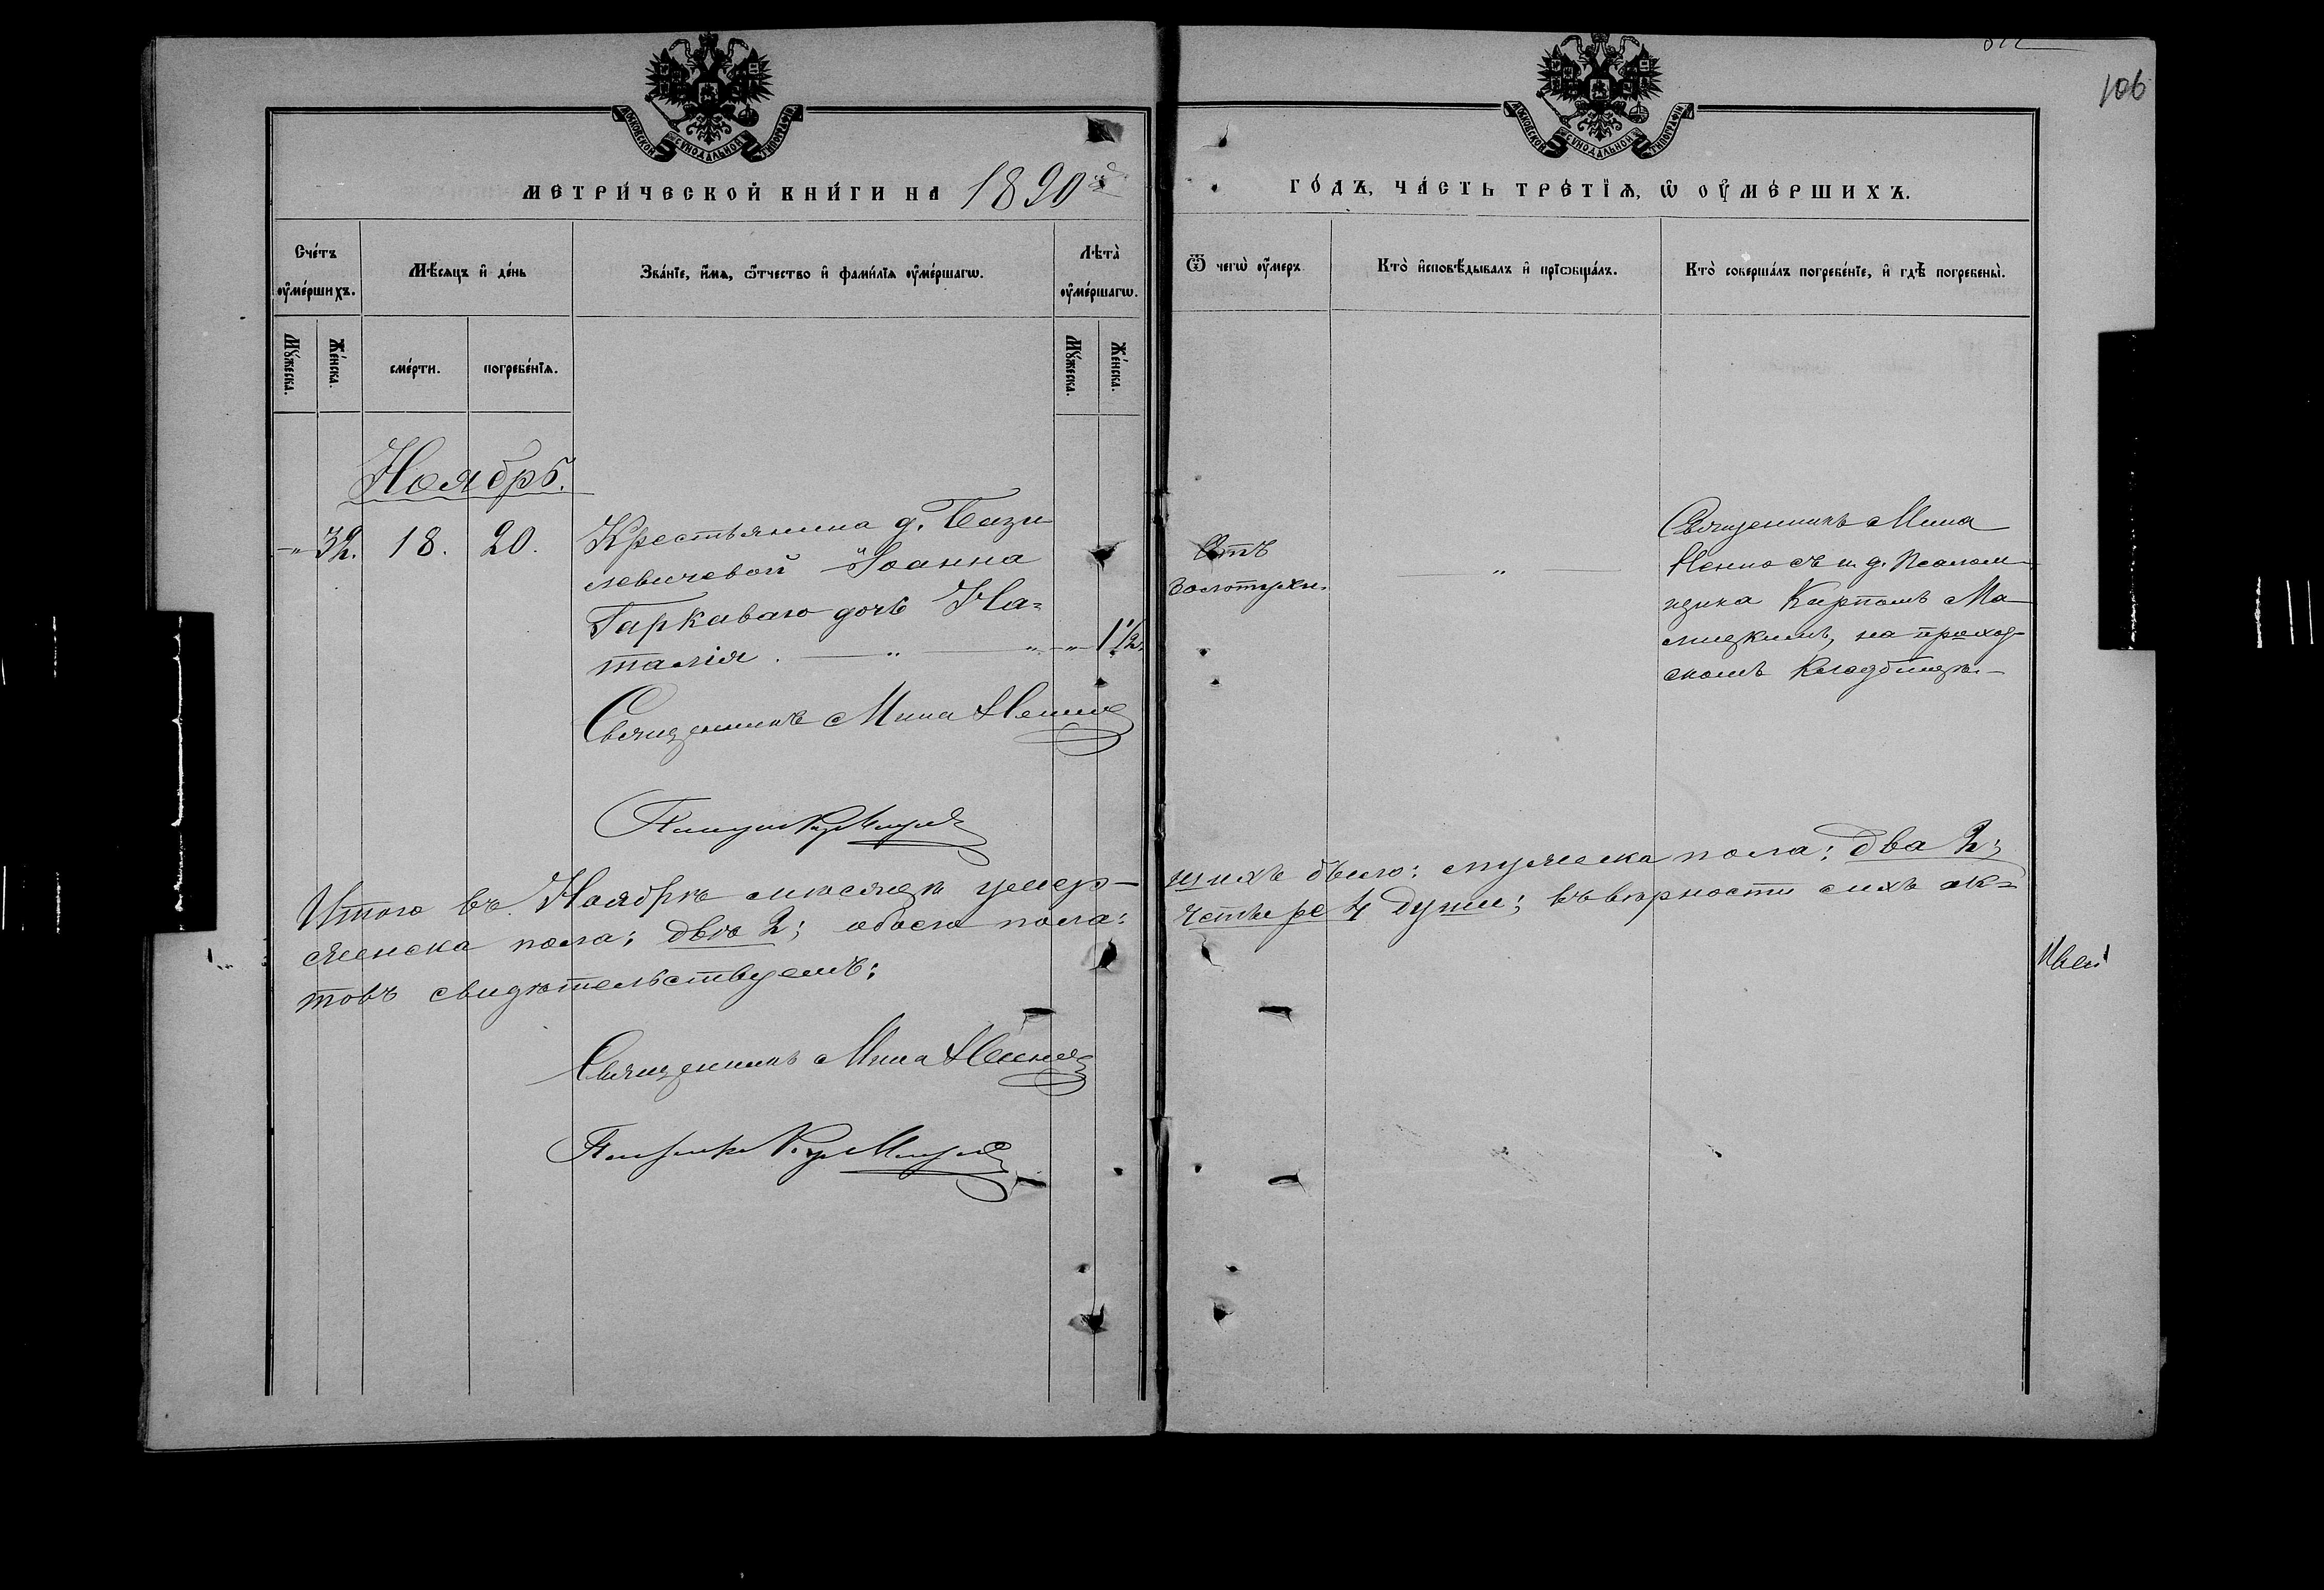 106
МОСКОВСКОЙ СѴНОДАЛЬНОЙ ТИПОГРАФІИ
МОСКОВСКОЙ СѴНОДАЛЬНОЙ ТИПОГРАФІИ
МЕТРИ́ЧЕСКОЙ КНИ́ГИ НА 1890й
ГО́ДЪ, ЧА́СТЬ ТРЕ́ТЇѦ, Ѡ҆ ОУ҆МЕ́РШИХЪ.
Сче́тъ
оу҆ме́ршихъ.
Мѣ́сяцъ и҆ де́нь
Зва́нїе, и҆́мѧ, ѻ҆́тчество и҆ фамі́лїя оу҆ме́ршагѡ.
Лѣта̀
оу҆ме́ршагѡ.
Ѿ чегѡ̀ оу҆́меръ
Кто̀ и҆сповѣ́дывалъ и҆ прїѡбща́лъ.
Кто̀ соверша́лъ погребе́нїе, и҆ гдѣ̀ погребены̀.
Мꙋ́жеска.
Же́нска.
сме́рти.
погребе́нїя.
Мꙋ́жеска.
Же́нска.
Ноябрь.
-"- 32. 18. 20. Крестьянина д. Бази-
левичевой Іоанна
Гаркаваго дочь На-
талія. — " — " -"- 1 1/2.
Отъ
золотухи.
— " —
Священникъ Мина
Ненно съ и. д. псалом-
щика Карпомъ Ма-
лицкимъ, на приход-
скомъ кладбищѣ.—
Священникъ Мина Ненно
Итого въ Ноябрѣ мѣсяцѣ умер-
шихъ было: мужеска пола: два 2;
женска пола: двѣ 2; обоего пола:
четыре 4 души; въ вѣрности сихъ ак-
товъ свидѣтельствуемъ:
Священникъ Мина Ненно